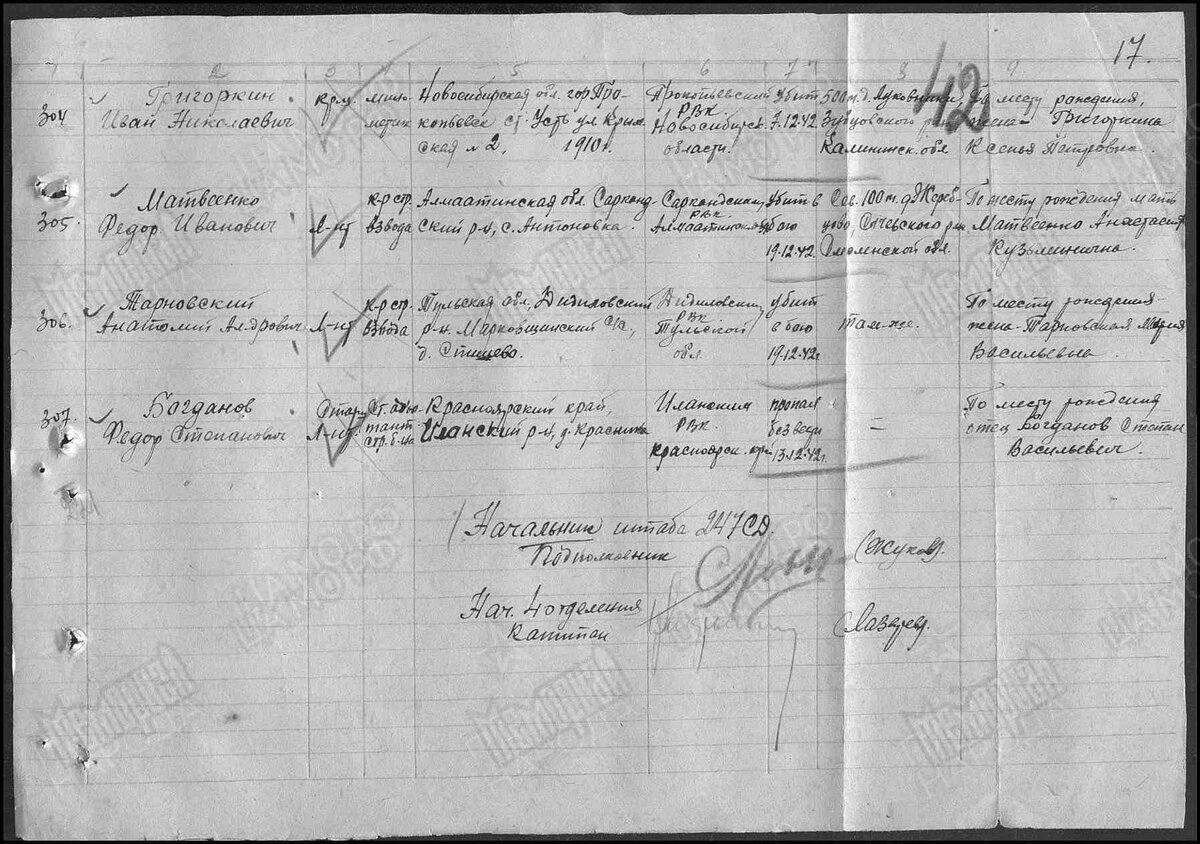 17.
42
1 2 3 5 6 7 8 9
304 Григоркин Иван Николаевич
кр-ц.
мино-
метчик
Новосибирская обл. гор Про-
копьевск ст. Усть ул Крым.
ская № 2, 1910г.
Прокопьевский
РВК
Новосибирск.
области.
Убит
7.12.42
500 м. д. Луковники,
Зубцовского
Калининск. обл
По месту рождения,
жена - Григоркина
Ксенья Петровна.
305. Матвеенко
Федор Иванович
Л-нт
к-р стр.
взвода
Алмаатинская обл. Сарканд-
ский р-н, с. Антоновка.
Саркандский
РВК
убит в
бою
19.12.42
Сев. 100 м. д.
Сычевского р-на
Смоленской обл.
По месту рождения мать
Матвеенко Анастасия
Кузьминична.
306. Тарновский
Анатолий Андрович
Л-нт
к-р стр.
взвода
Тульская обл,
р-н,
с/с,
РВК
Тульской
обл
убит
в бою
19.12.42г
там-же.
По месту рождения-
жена-Тарновская Мария
Васильевна.
307. Богданов
Федор Степанович
Стар.
Л-нт
Ст. адъю-
тант
стр. б-на
Красноярский край,
Иланский р-н, д.
Иланским
РВК.
Красноярск. края
пропал
без вести
13.12.42г.
=
По месту рождения
отец Богданов Степан
Васильевич.
Начальник штаба 247 СД.
Подполковник (Жуков).
Нач. 4 отделения
капитан Лазарев.
Мемориал
ЦАМО РФ